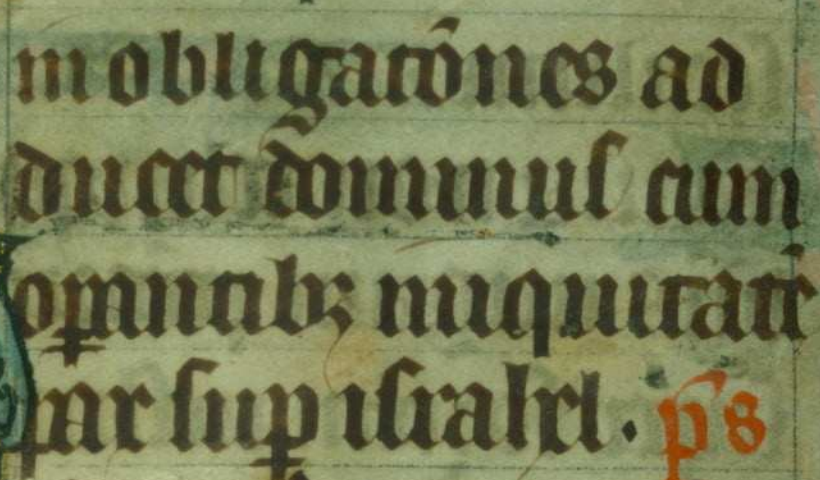 in obligatōnes ad
ducet dominus cum
opantibꝫ iniquitatē
pax suꝑ israhel. p̄s